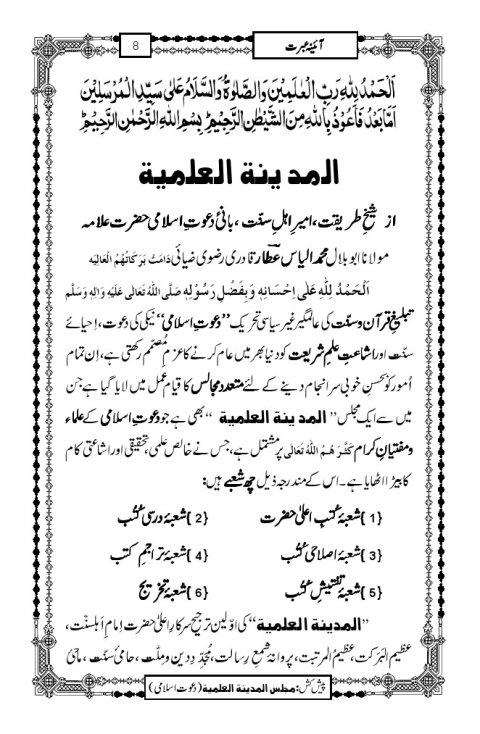 آئینۂ عبرت
8
اَلْحَمْدُ لِلّٰہِ رَبِّ الْعٰلَمِیْنَ وَالصَّلٰوۃُ وَالسَّلَامُ عَلٰی سَیِّدِ الْمُرْسَلِیْنَ
اَمَّا بَعْدُ فَاَعُوْذُ بِاللّٰہِ مِنَ الشَّیْطٰنِ الرَّجِیْمِ ؕ بِسْمِ اللّٰہِ الرَّحْمٰنِ الرَّحِیْمِ ؕ
المدینۃ العلمیۃ
از شیخِ طریقت، امیرِ اہلِ سنّت، بانیٔ دعوتِ اسلامی حضرت علامہ
مولانا ابو بلال محمد الیاس عطارؔ قادری رضوی ضیائی دَامَتْ بَرَکَاتُہُمُ الْعَالِیَہ
اَلْحَمْدُ لِلّٰہِ عَلٰی اِحْسَانِہٖ وَ بِفَضْلِ رَسُوْلِہٖ صَلَّی اللّٰہُ تَعَالٰی عَلَیْہِ وَاٰلِہٖ وَسَلَّم
تبلیغِ قرآن و سنّت کی عالمگیر غیر سیاسی تحریک ”دعوتِ اسلامی“ نیکی کی دعوت، اِحیائے
سنّت اور اشاعتِ علمِ شریعت کو دنیا بھر میں عام کرنے کا عزمِ مُصمّم رکھتی ہے، اِن تمام
اُمور کو بحسنِ خوبی سر انجام دینے کے لئے متعدد مجالس کا قیام عمل میں لایا گیا ہے جن
میں سے ایک مجلس ”المدینۃ العلمیۃ“ بھی ہے جو دعوتِ اسلامی کے علماء
و مفتیانِ کرام کَثَّرَ ھُمُ اللّٰہُ تَعَالٰی پر مشتمل ہے، جس نے خالص علمی، تحقیقی اور اشاعتی کام
کا بیڑا اٹھایا ہے۔ اس کے مندرجہ ذیل چھ شعبے ہیں:
{1} شعبۂ کُتُبِ اعلیٰ حضرت {2} شعبۂ درسی کُتُب
{3} شعبۂ اصلاحی کُتُب {4} شعبۂ تراجمِ کتب
{5} شعبۂ تفتیشِ کُتُب {6} شعبۂ تخریج
”المدینۃ العلمیۃ“ کی اوّلین ترجیح سرکارِ اعلیٰ حضرت اِمامِ اَہلسنّت،
عظیم البَرَکت، عظیمُ المرتبت، پروانۂ شمعِ رِسالت، مُجَدِّدِ دین و ملّت، حامیٔ سنّت، ماحیٔ
پیش کش: مجلس المدینۃ العلمیۃ (دعوتِ اسلامی)